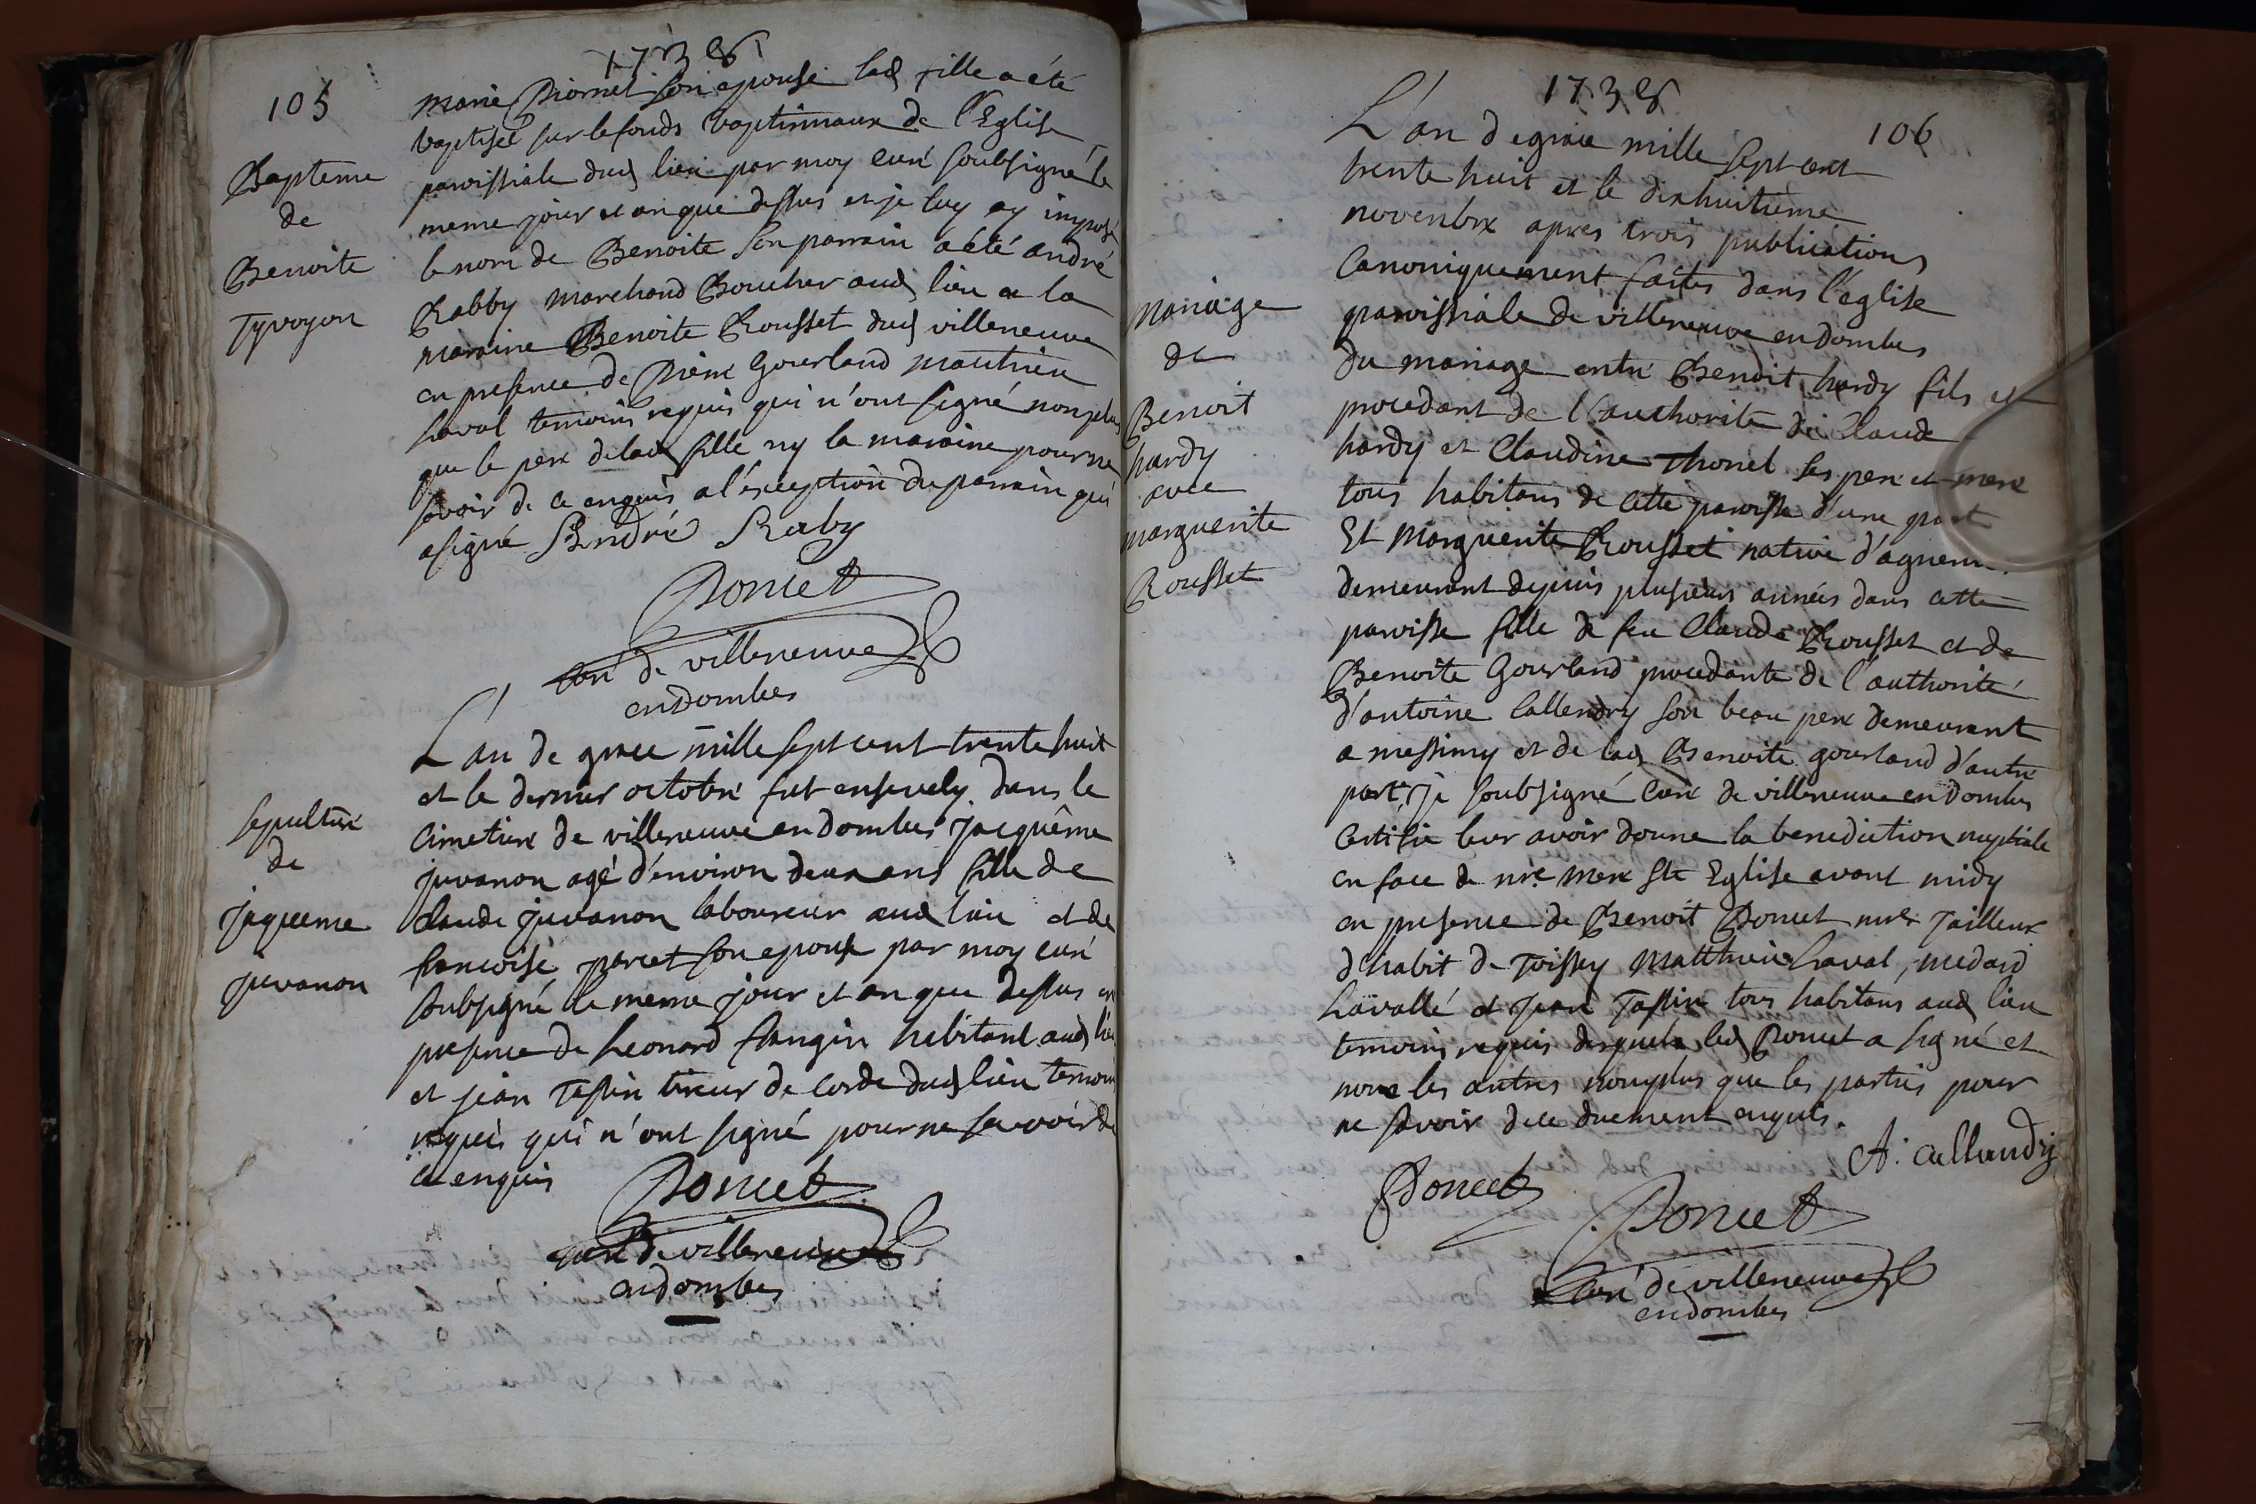 1738
105
Bapteme
de
Benoite
Tyvoyon
marie Piornet son epouse lad fille a été
baptisée sur le fonds baptismaux de l'Eglise
paroissiale dud lieu par moy curé soubsigné le
meme jour et an que dessus et je luy ay imposé
le nom de Benoite son parrain a été andré
Rabby marchand Boucher aud lieu et la
maraine Benoite Rousset dud villeneuve
en presence de Pierre Gourland matthieu
Laval temoins requis qui n'ont signé non plus
que le pere de lad fille ny la maraine pour ne
savoir de ce enquis a l'exception du parrain qui
a signé André Raby
Poncet
curé de villeneuve
en dombes
sepulture
de
jaqueme
juvanon
L'an de grace mille sept cent trente huit
et le dernier octobre fut ensevely dans le
cimetiere de villeneuve en dombes jacquême
juvanon agé d'environ deux ans fille de
claude juvanon laboureur aud lieu et de
francoise paret son epouse par moy curé
soubsigné le meme jour et an que dessus en
presence de Leonard frangin habitant aud lieu
et jean Tassin tireur de corde dud lieu temoins
requis qui n'ont signé pour ne savoir de
ce enquis
Poncet
curé de villeneuve
en dombes
1738
106
mariage
de
Benoit
hardy
avec
marguerite
Rousset
L'an de grace mille sept cent
trente huit et le dixhuitieme
novembre apres trois publications
Canoniquement faites dans l'eglise
paroissiale de villeneuve en dombes
du mariage entre Benoit hardy fils et
procedant de l'authorite de Claude
hardy et Claudine Thonel ses pere et mere
tous habitans de cette paroisse d'une part
Et Marguerite Rousset native d'agnem
demeurant depuis plusieurs années dans cette
paroisse fille de feu Claude Rousset et de
Benoite Gourland procedante de l'authorité
d'antoine Callendry son beau pere demeurant
a messimy et de lad Benoite gourland d'autre
part, je soubsigné curé de villeneuve en Dombes
Certifie leur avoir donné la benediction nuptiale
en face de nre mere Ste Eglise avant midy
en presence de Benoit Poncet mre Tailleur
d'habit de Toissey Matthieu Laval, medard
Lavallé et Jean Tassin tous habitans aud lieu
temoins requis desquels led Poncet a signé et
non les autres non plus que les parties pour
ne savoir de ce duement enquis.
A. callandry
Poncet
Poncet
curé de villeneuve
en dombes